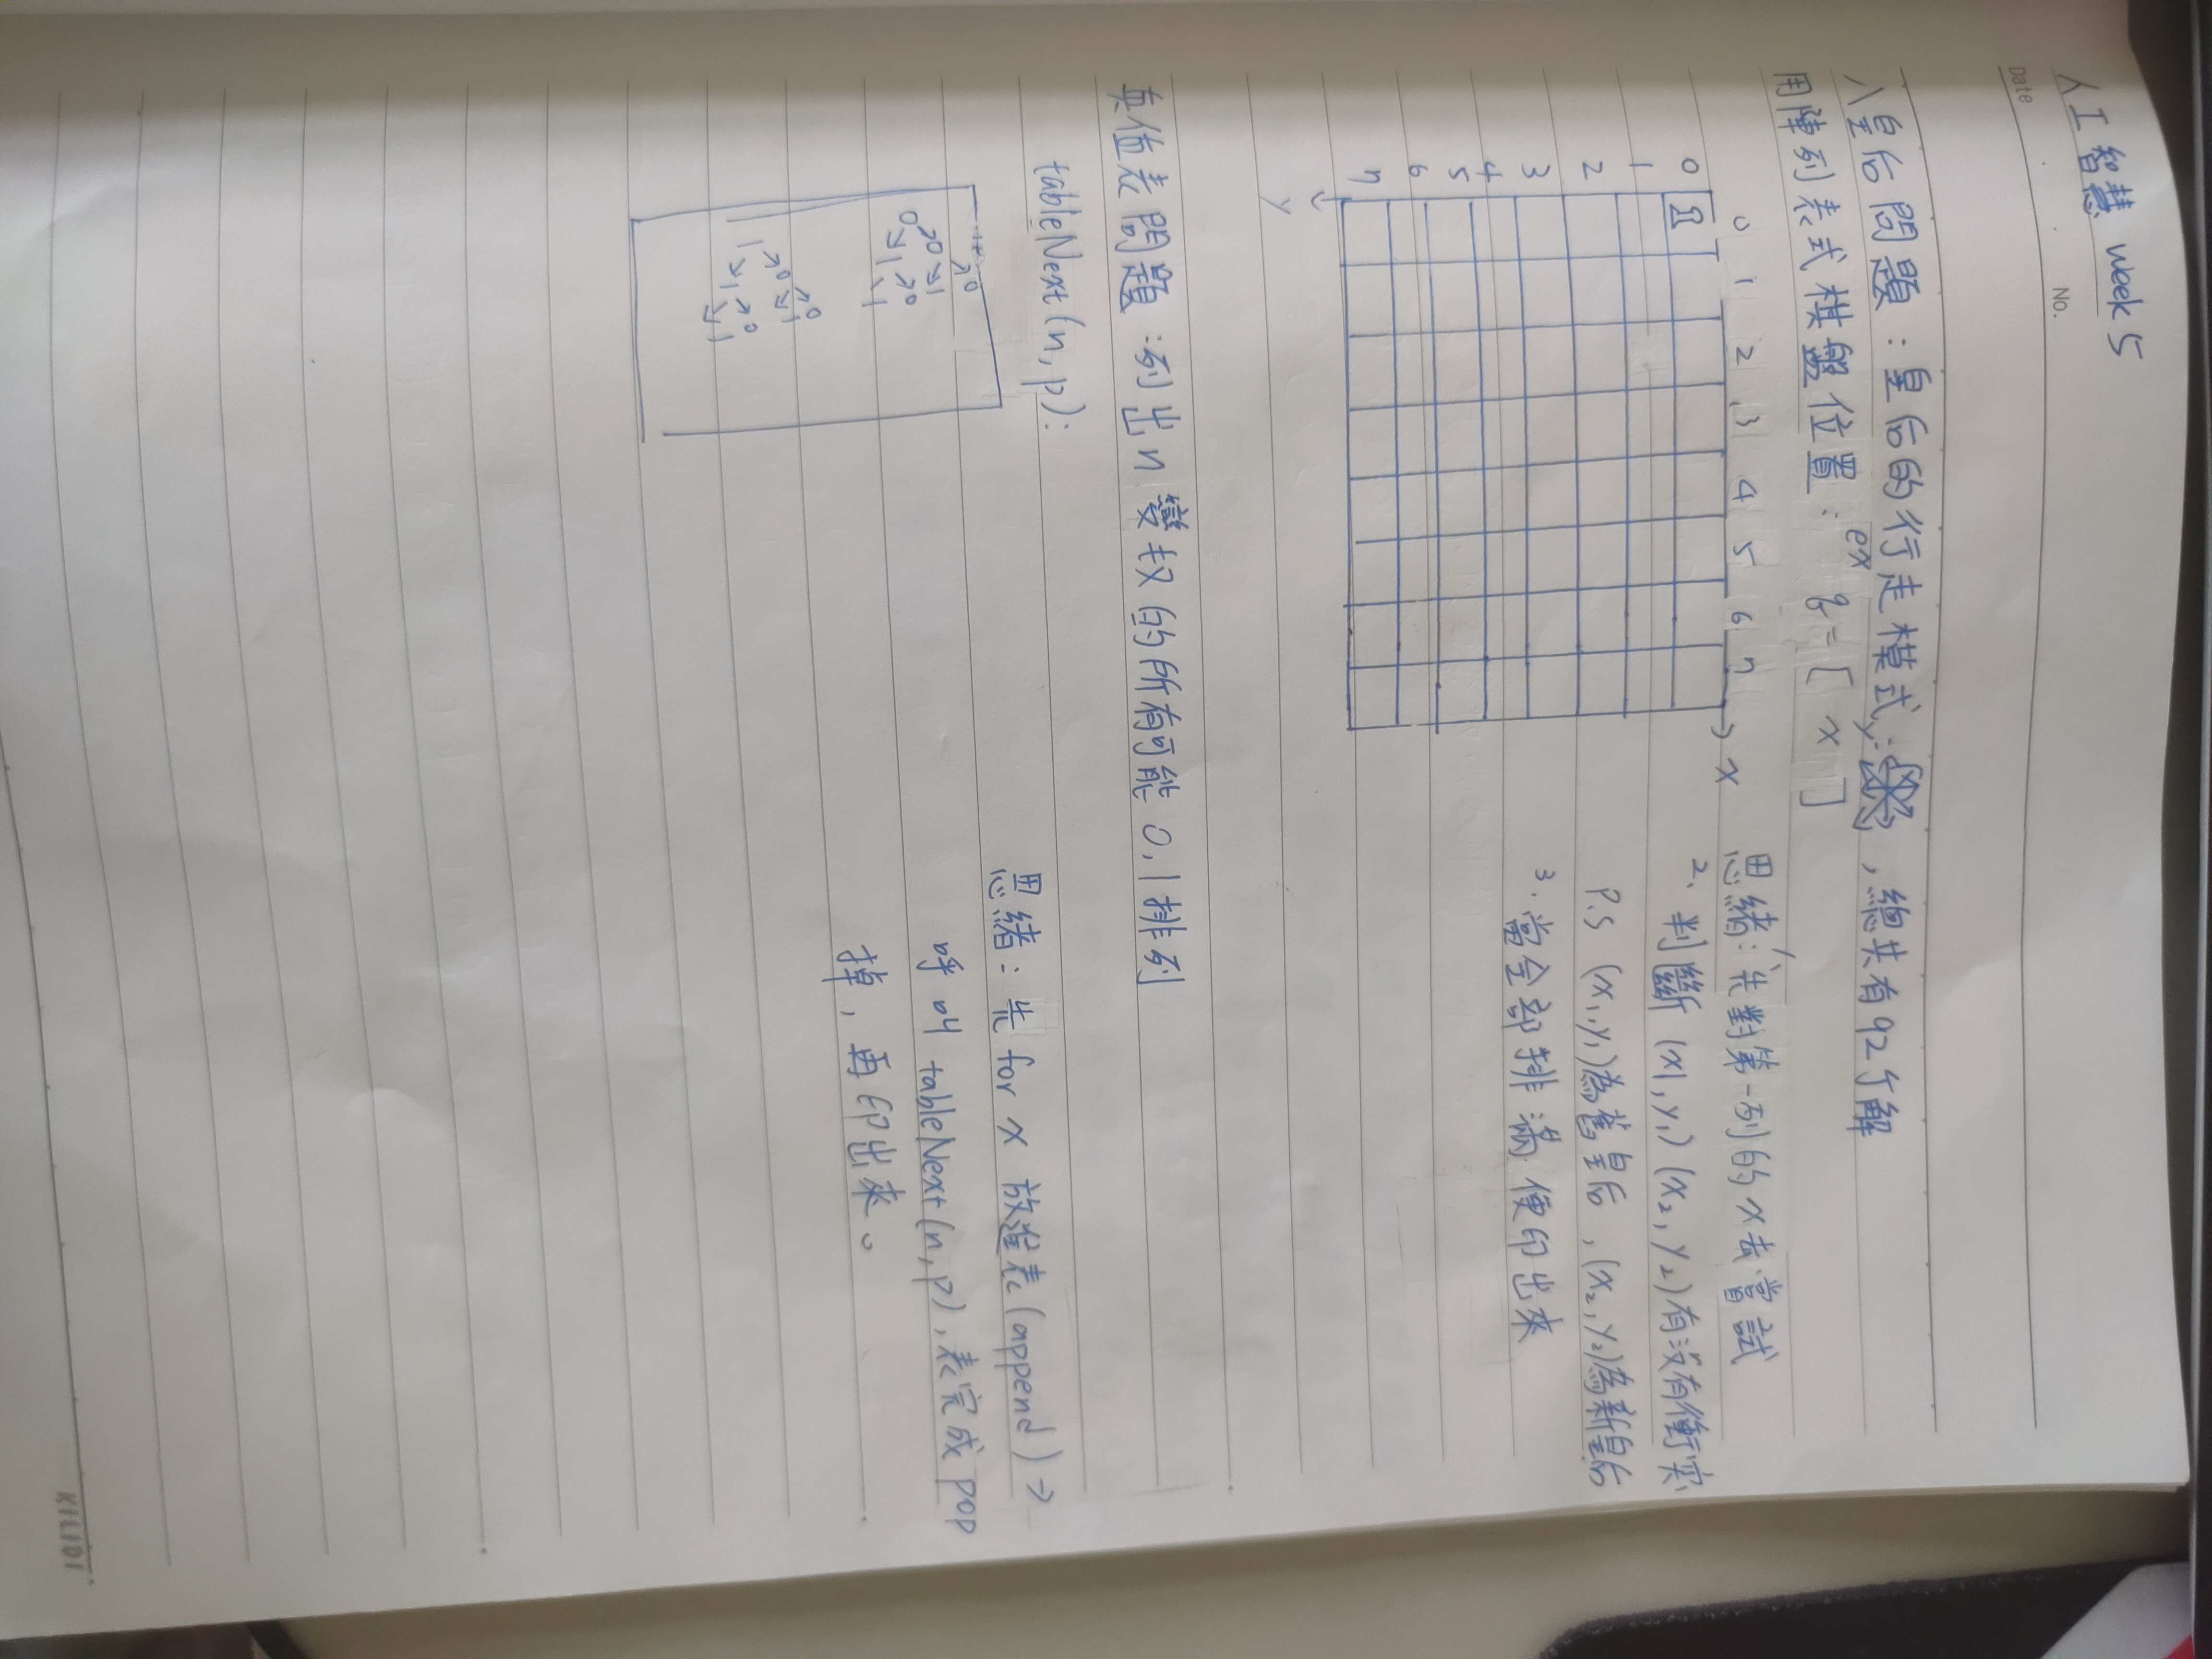 人工智慧 week 5
No.
Date
八皇后問題：皇后的行走模式：，總共有92个解
用陣列表式棋盤位置：ex q = [ x ]
y
0 1 2 3 4 5 6 7 → x
0
1
2
3
4
5
6
7
y
思緒：1、先對第一列的x去嘗試
2、判斷 (x1,y1) (x2,y2)有沒有衝突
P.S (x1,y1)為舊皇后，(x2,y2)為新皇后
3. 當全部排滿便印出來
真值表問題：列出n變权的所有可能0,1排列
tableNext(n,p):
0
0 1
0 0
1 1
0
0 1
1 0
1 1
思緒：先 for x 放進表(append) →
呼叫 tableNext(n,p),表完成 pop
掉，再印出來。
KILIDI